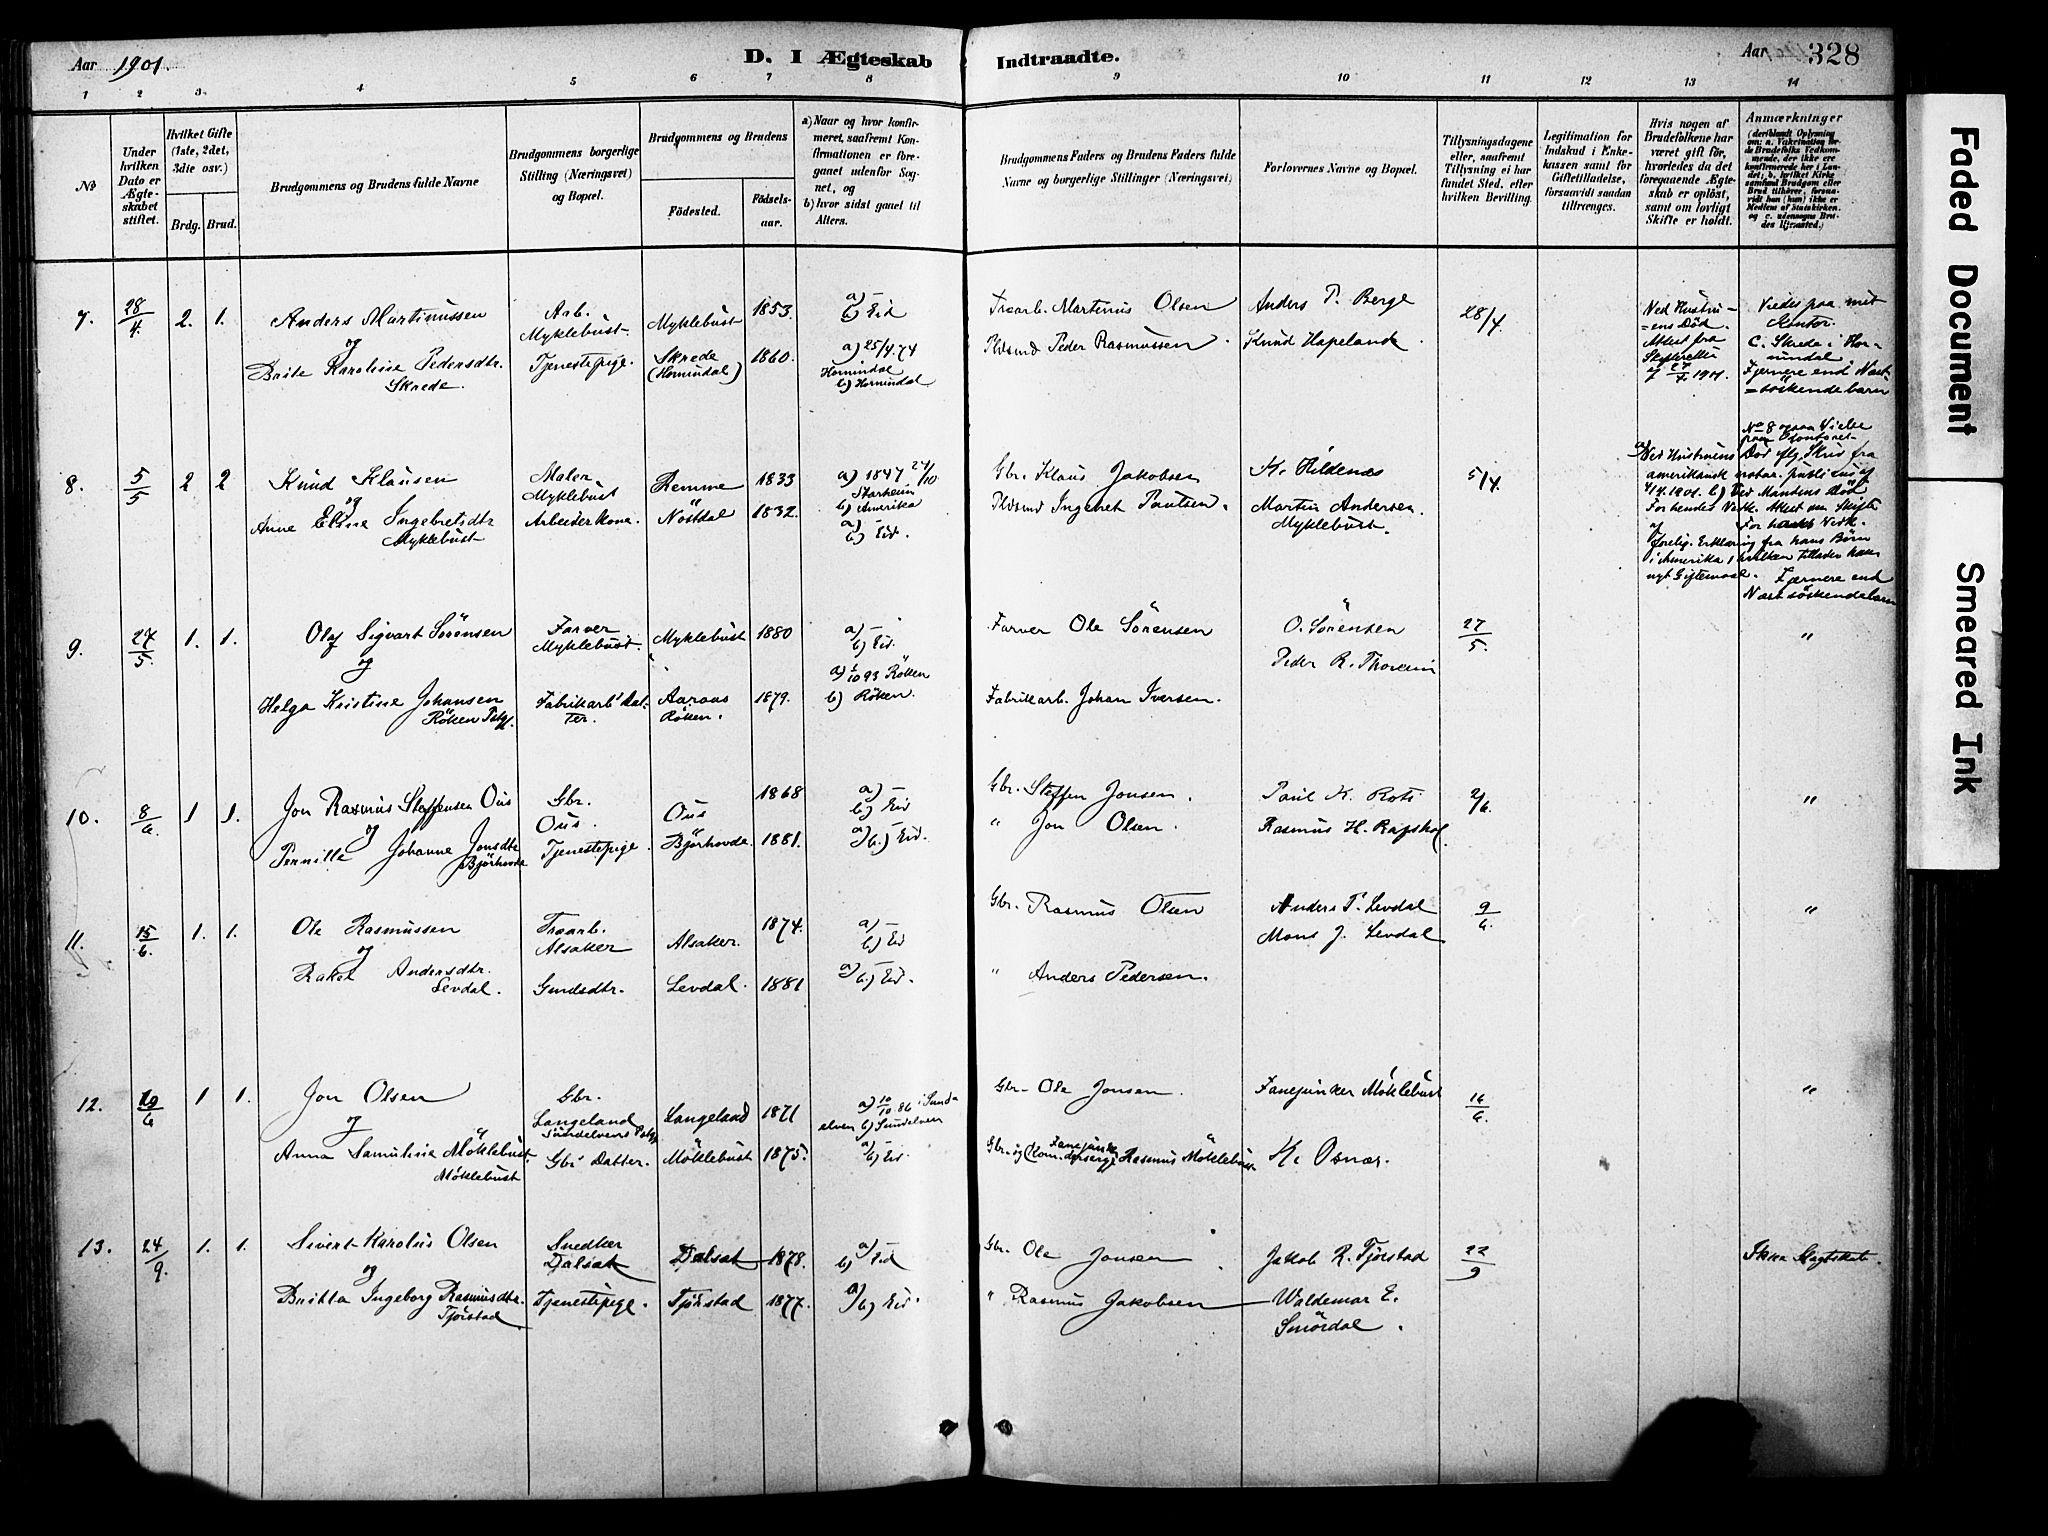 Aar 1901.
D. I Ægteskab
Indtraadte.
Aar
328
1 2 3 4 5 6 7 8 9 10 11 12 13 14
No
Under hvilken Dato er Ægteskabet stiftet.
Hvilket Gifte (1ste, 2det, 3die osv.)
Brdg. Brud.
Brudgommens og Brudens fulde Navne
Brudgommens borgerlige Stilling (Næringsvei) og Bopæl.
Brudgommens og Brudens
Fødested. Fødselsaar.
a) Naar og hvor konfirmeret, saafremt Konfirmationen er foregaaet udenfor Sognet, og
b) hvor sidst gaaet til Alters.
Brudgommens Faders og Brudens Faders fulde Navne og borgerlige Stillinger (Næringsvei)
Forlovernes Navne og Bopæl.
Tillysningsdagene eller, saafremt Tillysning ei har fundet Sted, efter hvilken Bevilling.
Legitimation for Indskud i Enkekassen samt for Giftetilladelse, forsaavidt saadan tiltrænges.
Hvis nogen af Brudefolkene har været gift før, hvorledes da det foregaaende Ægteskab er opløst, samt om lovligt Skifte er holdt.
Anmærkninger
7. 28/4. 2. 1. Anders Martinussen Arb. Myklebust Myklebust 1853. a) – b) Eid
Traarb. Martinus Olsen Anders P. Berge 28/4.
og
Brite Karoline Pedersdtr. Skrede. Tjenestepige. Skrede (Hornindal) 1860. a) 25/4.74 Hornindal b) Hornindal
Pldsmd Peder Rasmussen. Knud Hapeland.
Ved Hustruens Død. Attest fra Skifteretten af 1901.
Viedes paa mit Kontor. C. Skrede i Hornindal. Fjernere end Næst=söskendebarn
8. 5/5 2 2 Knud Klausen Maler Myklebust Remme 1833 a) 1847 24/10 Starheim b) Amerika
Gbr. Klaus Jakobsen K. Hildenes 5/4.
og
Anne Eline Ingebretsdtr Myklebust Arbeiderkone. Nöstdal 1832. a) – b) Eid.
Plsmd Ingebret Paulsen. Martin Andersen Myklebust.
No 8 ogsaa Vielse paa Kontoret
a) Ved Hustruens Død eflg. Skriv fra
amerikansk notar. publicus af
4/4.1901. b) Ved Mandens Død
For hendes Vedk. Attest om Skifte
For hans Vedk.
forelig. Erklæring fra hans Börn
i Amerika, hvilken tillader hans
nyt Giftermaal. Fjernere end
Næstsöskendebarn
9. 27/5. 1. 1. Olaf Sigvart Sörensen Farver Myklebust. Myklebust 1880 a) – b) Eid.
Farver Ole Sörensen O. Sörensen 27/5. "
og
Helga Kristine Johansen Röken Pstgj. Fabrikarb. Datter. Aaraas Röken. 1879. a) 1/10 93 Röken b) Röken.
Fabrikarb. Johan Iversen. Peder R.
10. 8/6 1 1. Jon Rasmus Steffensen Ous Gbr. Ous. Ous 1868 a) – b) Eid
Gbr. Steffen Jonsen. Paul K. Roti 2/6. "
og
Pernille Johanne Jonsdtr Björhovde Tjenestepige. Björhovde. 1881. a) – b.) Eid.
" Jon Olsen. Rasmus H.
11. 15/6. 1. 1. Ole Rasmussen Traarb. Alsaker Alsaker. 1874. a) – b) Eid
Gbr. Rasmus Olsen Anders P. Levdal 9/6. "
og
Rakel Andersdtr. Levdal. Gmdsdtr. Levdal. 1881 a) – b.) Eid.
" Anders Pedersen. Mons J. Levdal
12. 19/6 1 1. Jon Olsen Gbr. Langeland Sundelvens Pstgj. Langeland 1871 a) 10/10.86 i Sundelven b) Sundelven
Gbr. Ole Jonsen. Fanejunker Möklebust 16/6 "
og
Anna Samuline Möklebust Möklebust Gbr Datter. Möklebust 1875. a) – b) Eid
Gbr. og Fanejunker Rasmus Möklebust K. Osnæs.
13. 24/9. 1. 1. Sivert Karolus Olsen Snedker Dalsæt Dalsæt 1878. a) – b) Eid
Gbr. Ole Jonsen. Jakob R. Tjörstad 22/9 Ikke Slegtskab.
og
Britta Ingeborg Rasmusdtr. Tjörstad. Tjenestepige. Tjörstad 1877. a) b) Eid.
" Rasmus Jakobsen Waldemar E. Smördal.
Faded Document
Smeared Ink